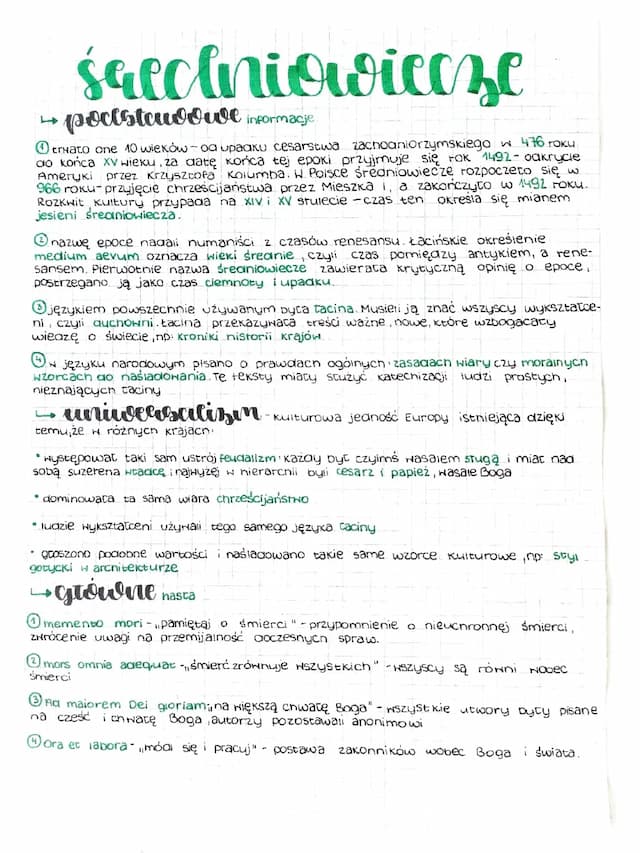 średniowiecze
↳ podstawowe informacje
① trwało one 10 wieków - od upadku cesarstwa zachodniorzymskiego w 476 roku
do końca XV wieku, za datę końca tej epoki przyjmuje się rok 1492 - odkrycie
Ameryki przez Krzysztofa Kolumba. W Polsce średniowiecze rozpoczęło się w
966 roku - przyjęcie chrześcijaństwa przez Mieszka I, a zakończyło w 1492 roku.
Rozkwit kultury przypada na XIV i XV stulecie - czas ten określa się mianem
jesieni średniowiecza.
② nazwę epoce nadali humaniści z czasów renesansu. Łacińskie określenie
medium aevum oznacza wieki średnie, czyli czas pomiędzy antykiem, a rene-
sansem. Pierwotnie nazwa średniowiecze zawierała krytyczną opinię o epoce,
postrzegano ją jako czas ciemnoty i upadku.
③ językiem powszechnie używanym była łacina. Musieli ją znać wszyscy wykształce-
ni, czyli duchowni. Łacina przekazywała treści ważne, nowe, które wzbogacały
wiedzę o świecie, np. kroniki historii krajów.
④ w języku narodowym pisano o prawdach ogólnych: zasadach wiary czy moralnych
wzorcach do naśladowania. Te teksty miały służyć katechizacji ludzi prostych,
nieznających łaciny
↳ uniwersalizm - kulturowa jedność Europy istniejąca dzięki
temu, że w różnych krajach:
• występował taki sam ustrój feudalizm: każdy był czyimś wasalem sługą i miał nad
sobą suzerena władcę i najwyżej w hierarchii byli cesarz i papież, wasale Boga
• dominowała ta sama wiara chrześcijaństwo
• ludzie wykształceni używali tego samego języka łaciny
• głoszono podobne wartości i naśladowano takie same wzorce kulturowe, np. styl
gotycki w architekturze
↳ główne hasła
① memento mori - „pamiętaj o śmierci" - przypomnienie o nieuchronnej śmierci,
zwrócenie uwagi na przemijalność doczesnych spraw.
② mors omnia adequat - „śmierć zrównuje wszystkich" - wszyscy są równi wobec
śmierci
③ Ad maiorem Dei gloriam „na większą chwałę Boga" - wszystkie utwory były pisane
na cześć i chwałę Boga, autorzy pozostawali anonimowi
④ Ora et labora - „módl się i pracuj" - postawa zakonników wobec Boga i świata.